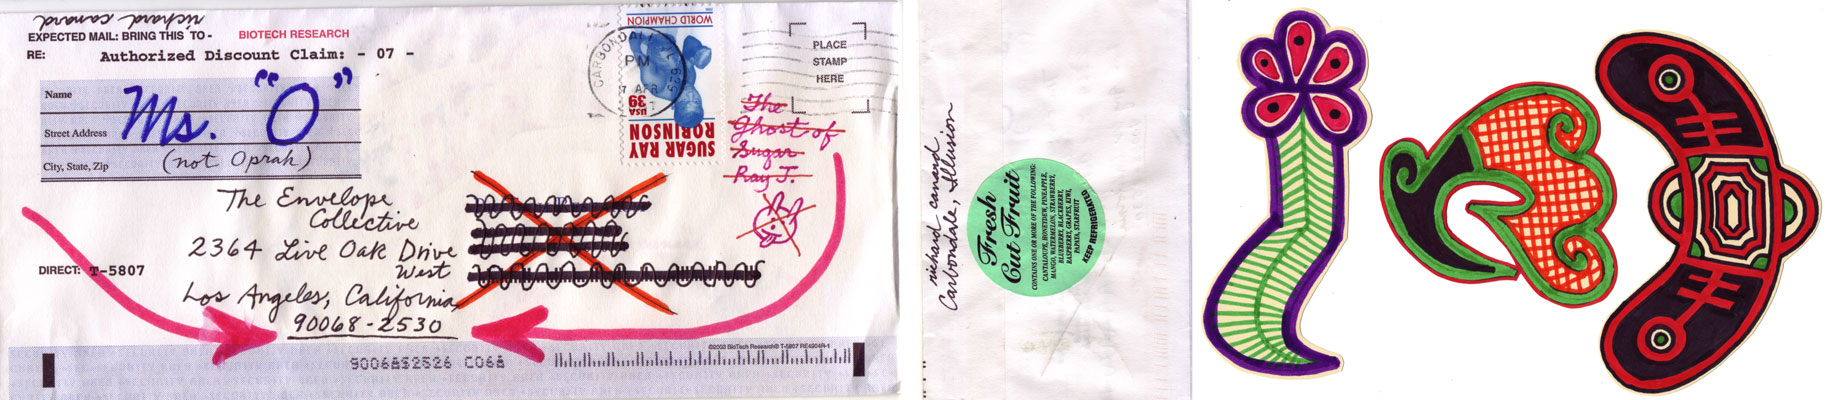 richard canard
EXPECTED MAIL: BRING THIS TO - BIOTECH RESEARCH
RE: Authorized Discount Claim: - 07 -
Name
Street Address
City, State, Zip
Ms. "O"
(not Oprah)
WORLD CHAMPION
USA 39
SUGAR RAY
ROBINSON
CARBONDALE
PM
7 APR
629
PLACE
STAMP
HERE
The
Ghost of
Sugar
Ray J.
The Envelope
Collective
2364 Live Oak Drive
West
Los Angeles, California,
90068-2530
DIRECT: T-5807
©2003 BioTech Research® T-5807 RE4904R-1
richard canard
Carbondale, Illusion
Fresh
Cut Fruit
CONTAINS ONE OR MORE OF THE FOLLOWING:
CANTALOUPE, HONEYDEW, PINEAPPLE,
MANGO, WATERMELON, STRAWBERRY,
BLUEBERRY, BLACKBERRY,
RASPBERRY, GRAPES, KIWI,
PAPAYA, STARFRUIT
KEEP REFRIGERATED